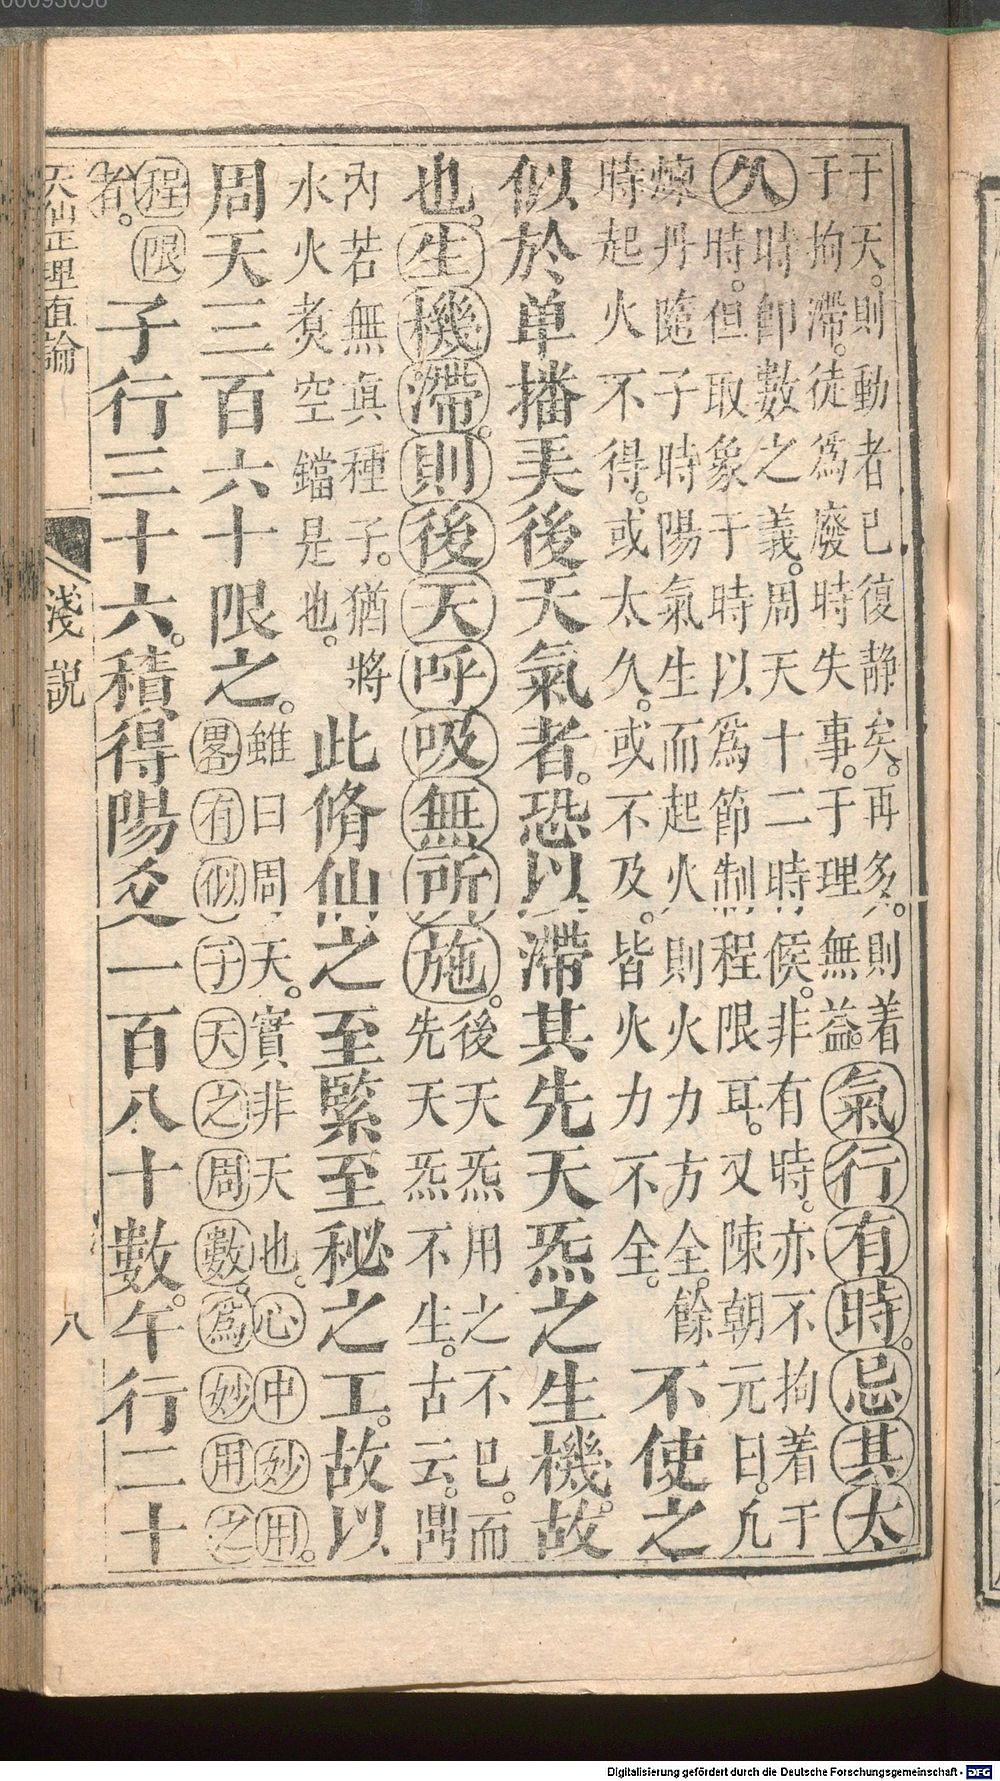 于天。則動者已復静矣。再多。則着
于拘滯。徒爲廢時失事。于理無益。
氣行有時。忌其太
久
時卽數之義。周天十二時候。非有時。亦不拘着于
時。但取象于時以爲節制程限耳。又陳朝元曰。凡
煉丹隨子時陽氣生而起火則火力方全。餘
時起火不得。或太久。或不及。皆火力不全。
不使之
似於单播美後天氣者。恐以滯其先天炁之生機。故
也。生機滯。則後天呼吸無所施。
後天炁用之不已。而
先天炁不生。古云。鼎
內若無真種子。猶將
水火煑空鐺是也。
此脩仙之至緊至秘之工。故以
周天三百六十限之。
雖曰周天。實非天也。心中妙用。
畧有似于天之周數。爲妙用之
程限
者。
子行三十六。積得陽爻一百八十數。午行二十
天仙正理直論
淺説
八
00093058
Digitalisierung gefördert durch die Deutsche Forschungsgemeinschaft - DFG